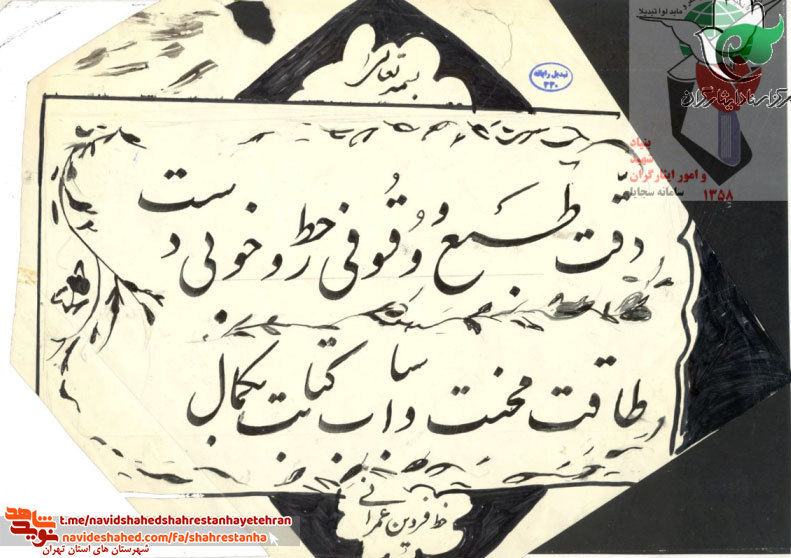 بسمه تعالی
تبدیل رایانه
۳۳۰
بنیاد
شهید
و امور ایثارگران
سامانه سجایا
۱۳۵۸
دقت طبع و وقوفی ز خط و خوبی دست
طاقت محنت و اسباب کتابت بکمال
خط فردین عمرانی
نوید شاهد
t.me/navidshahedshahrestanhayetehran
navideshahed.com/fa/shahrestanha
شهرستان های استان تهران